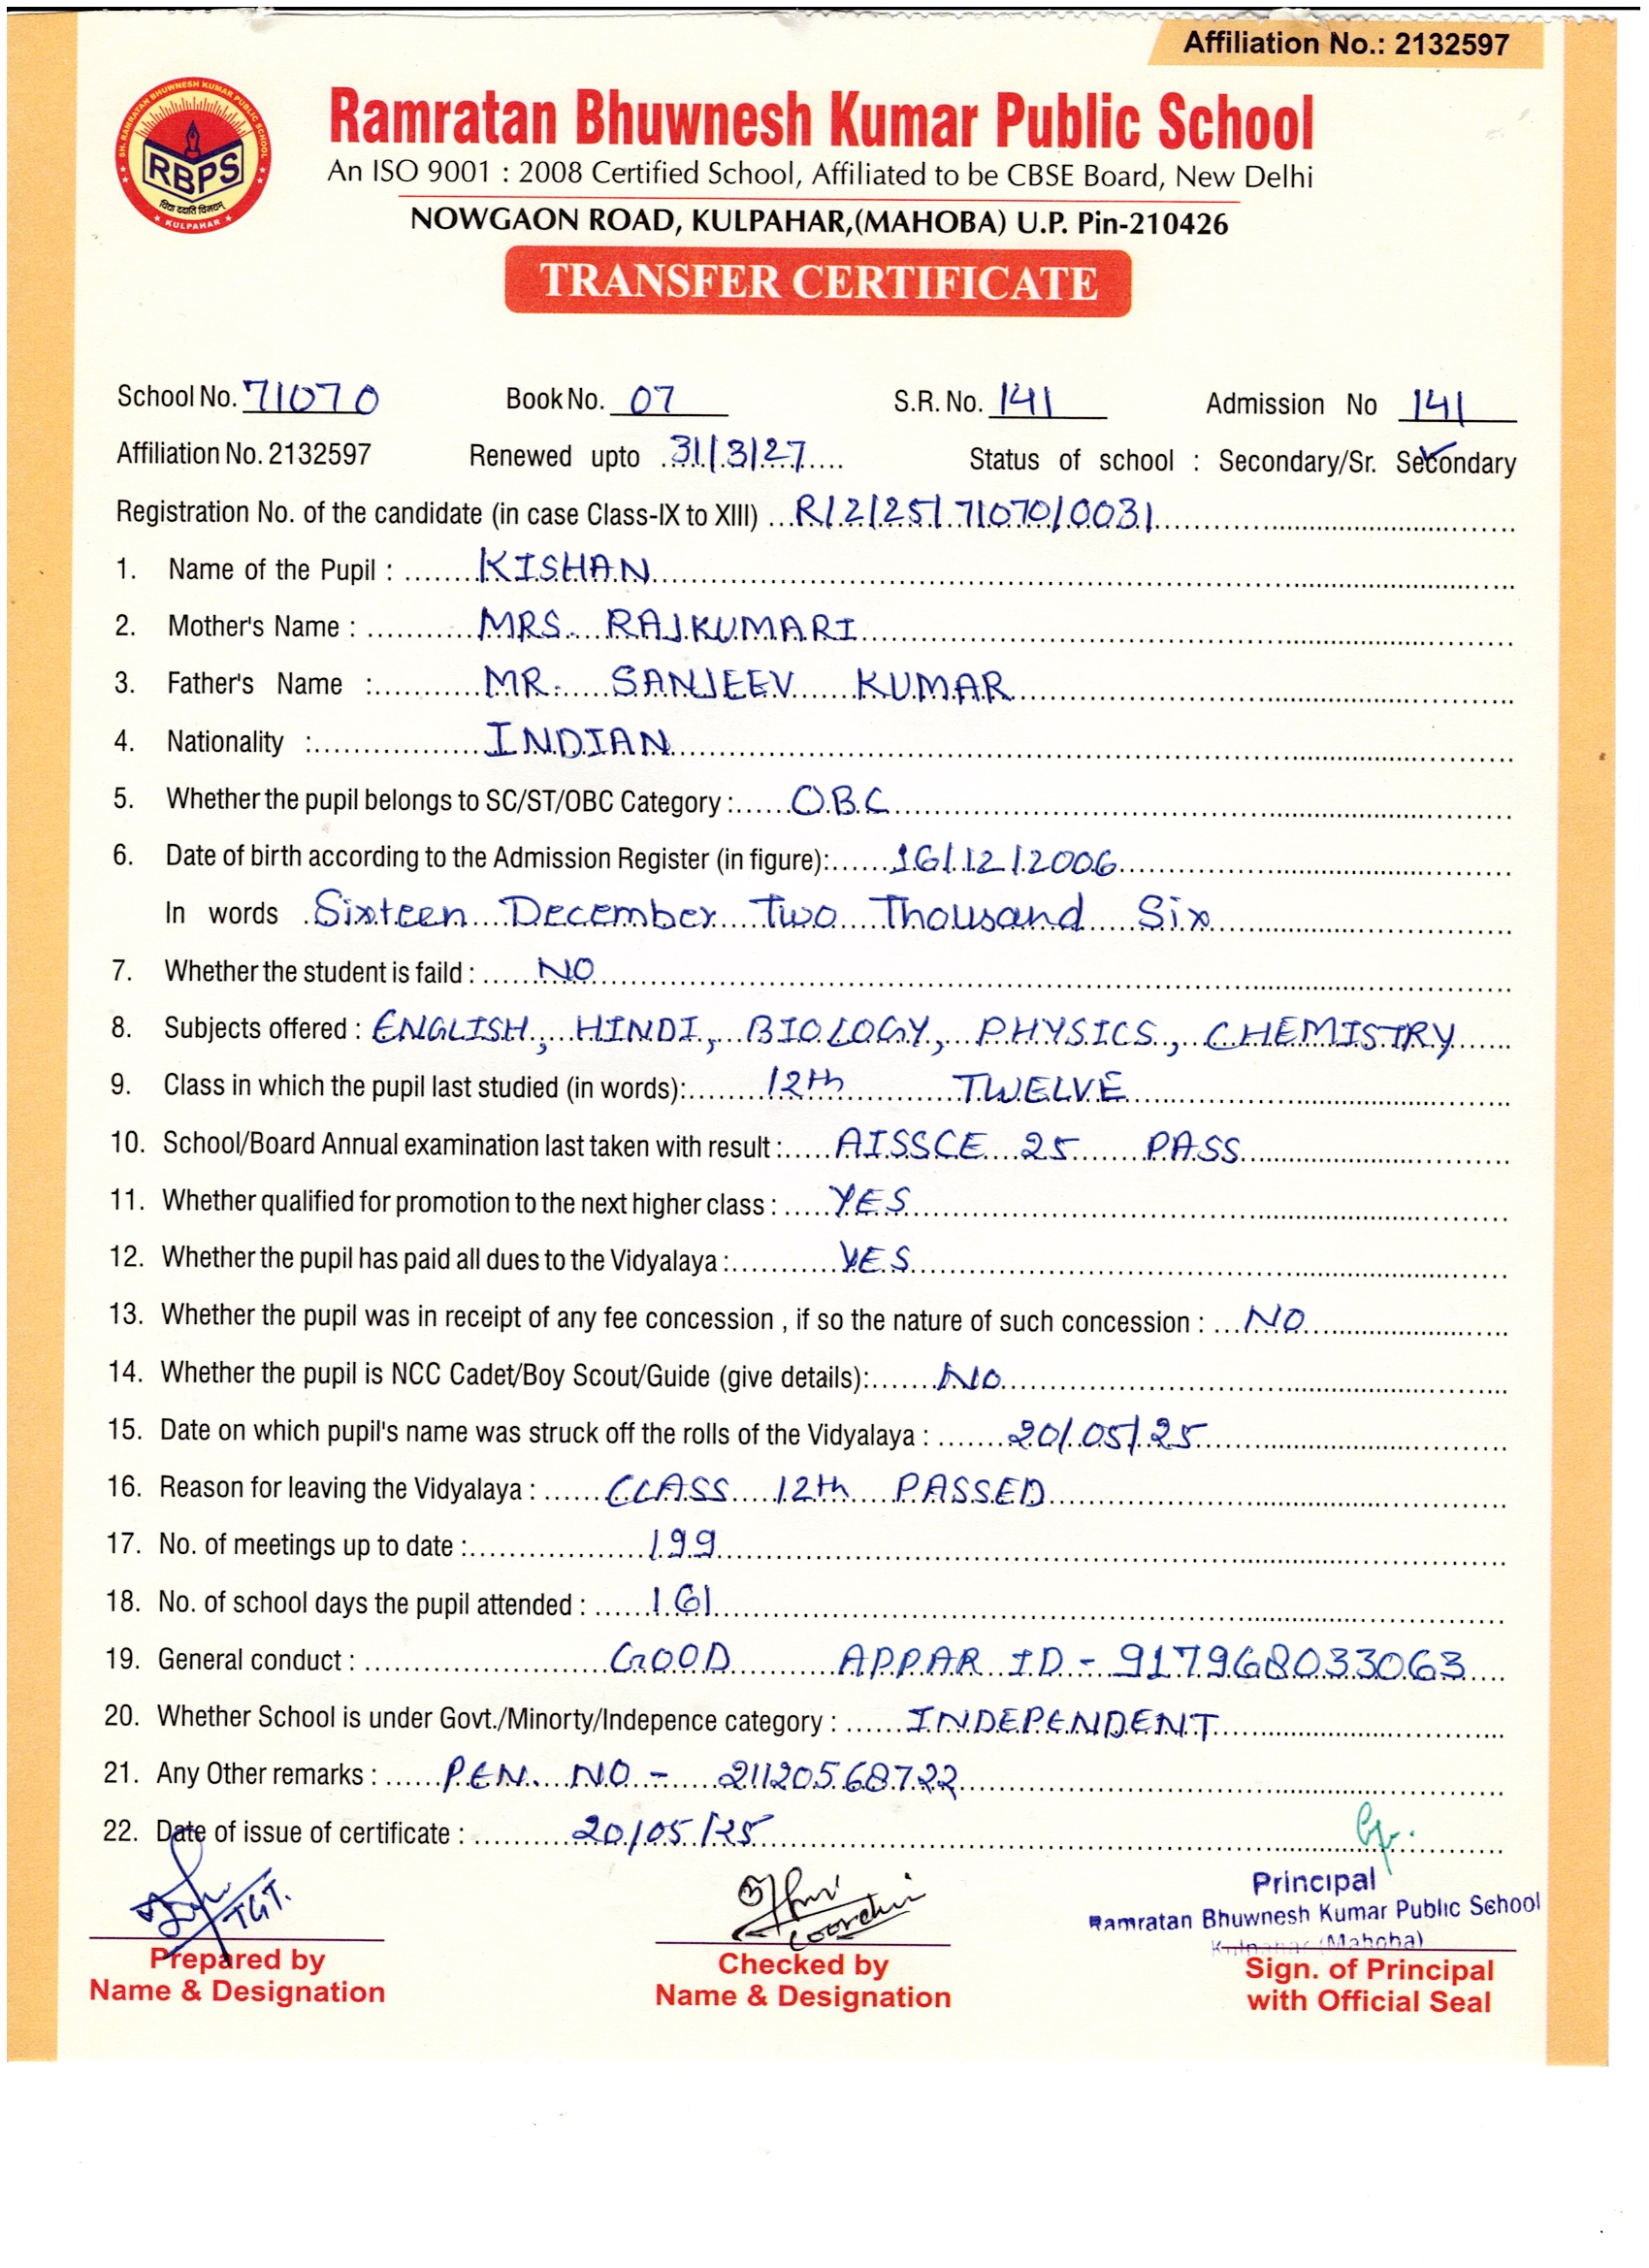 Affiliation No.: 2132597
SH. RAMRATAN BHUWNESH KUMAR PUBLIC SCHOOL
RBPS
विद्या ददाति विनयम्
KULPAHAR
Ramratan Bhuwnesh Kumar Public School
An ISO 9001 : 2008 Certified School, Affiliated to be CBSE Board, New Delhi
NOWGAON ROAD, KULPAHAR,(MAHOBA) U.P. Pin-210426
TRANSFER CERTIFICATE
School No. 71070 Book No. 07 S.R. No. 141 Admission No 141
Affiliation No. 2132597 Renewed upto 31/3/27 Status of school : Secondary/Sr. Secondary
Registration No. of the candidate (in case Class-IX to XIII) R/2/25/71070/0031
1. Name of the Pupil : KISHAN
2. Mother's Name : MRS. RAJKUMARI
3. Father's Name : MR. SANJEEV KUMAR
4. Nationality : INDIAN
5. Whether the pupil belongs to SC/ST/OBC Category : OBC
6. Date of birth according to the Admission Register (in figure): 16/12/2006
In words Sixteen December Two Thousand Six
7. Whether the student is faild : NO
8. Subjects offered : ENGLISH, HINDI, BIOLOGY, PHYSICS, CHEMISTRY
9. Class in which the pupil last studied (in words): 12th TWELVE
10. School/Board Annual examination last taken with result : AISSCE 25 PASS
11. Whether qualified for promotion to the next higher class : YES
12. Whether the pupil has paid all dues to the Vidyalaya : YES
13. Whether the pupil was in receipt of any fee concession , if so the nature of such concession : NO
14. Whether the pupil is NCC Cadet/Boy Scout/Guide (give details): NO
15. Date on which pupil's name was struck off the rolls of the Vidyalaya : 20/05/25
16. Reason for leaving the Vidyalaya : CLASS 12th PASSED
17. No. of meetings up to date : 199
18. No. of school days the pupil attended : 161
19. General conduct : GOOD APPAR ID - 917968033063
20. Whether School is under Govt./Minorty/Indepence category : INDEPENDENT
21. Any Other remarks : PEN. NO - 21120568722
22. Date of issue of certificate : 20/05/25
TGT.
Principal
Ramratan Bhuwnesh Kumar Public School
Kulpahar (Mahoba)
Prepared by
Name & Designation
Checked by
Name & Designation
Sign. of Principal
with Official Seal